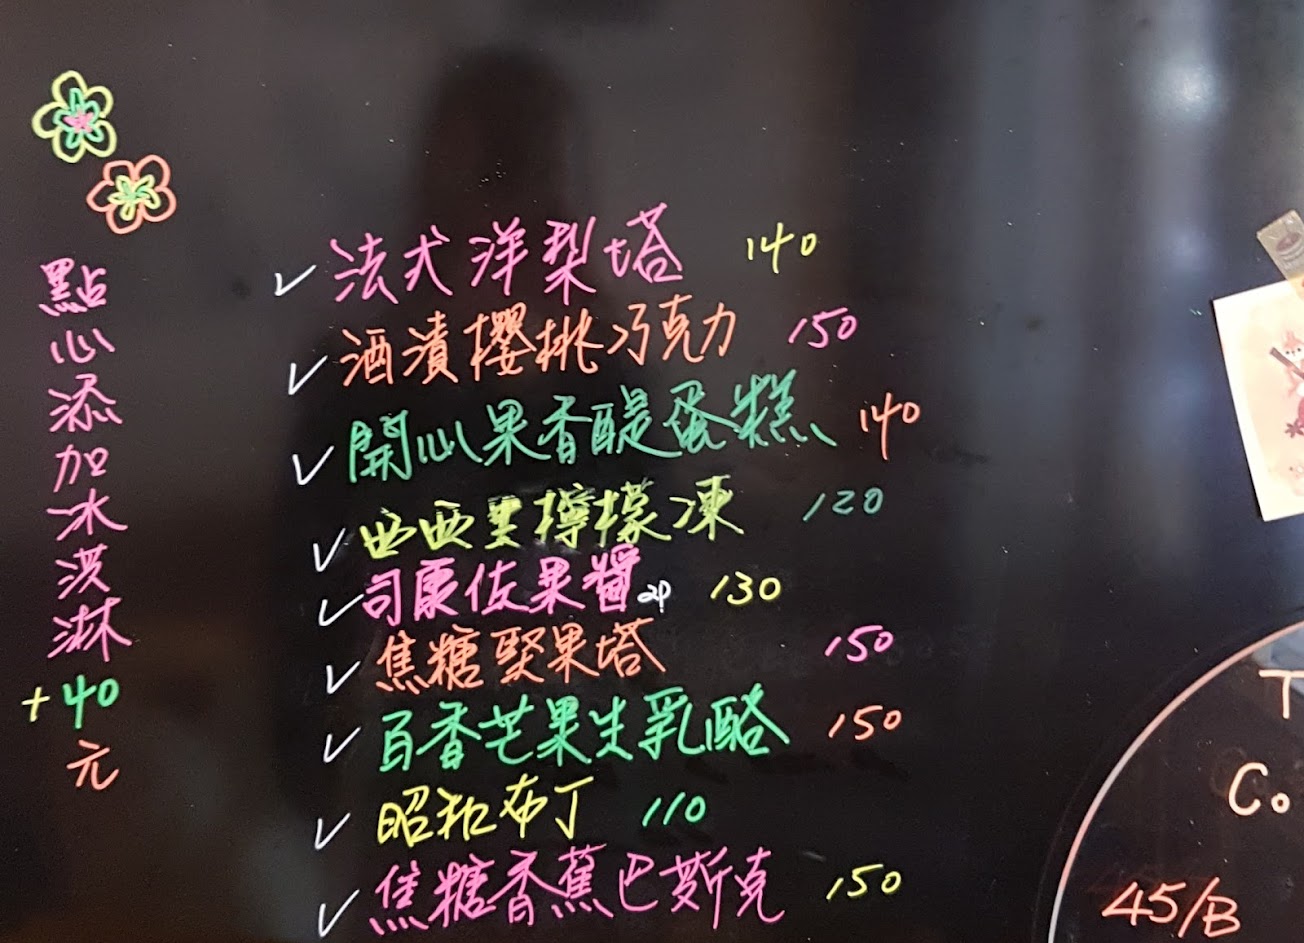 點心添加冰淇淋
+40
元
法式洋梨塔 140
酒漬櫻桃巧克力 150
開心果香醍蛋糕 140
西西里檸檬凍 120
司康佐果醬 2P 130
焦糖堅果塔 150
百香芒果生乳酪 150
昭和布丁 110
焦糖香蕉巴斯克 150
T
Co
45/B